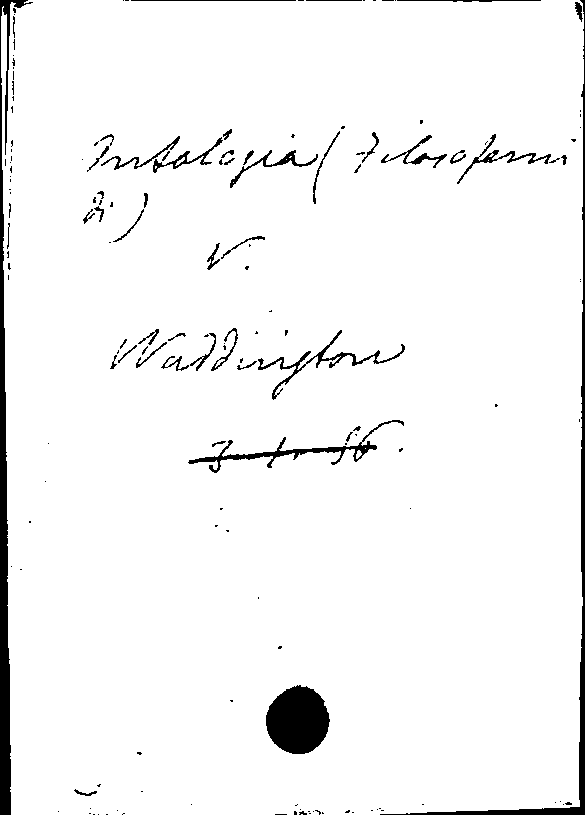 Antologia (Filosofemi
di)
V.
Waddington
3. 1. 86.